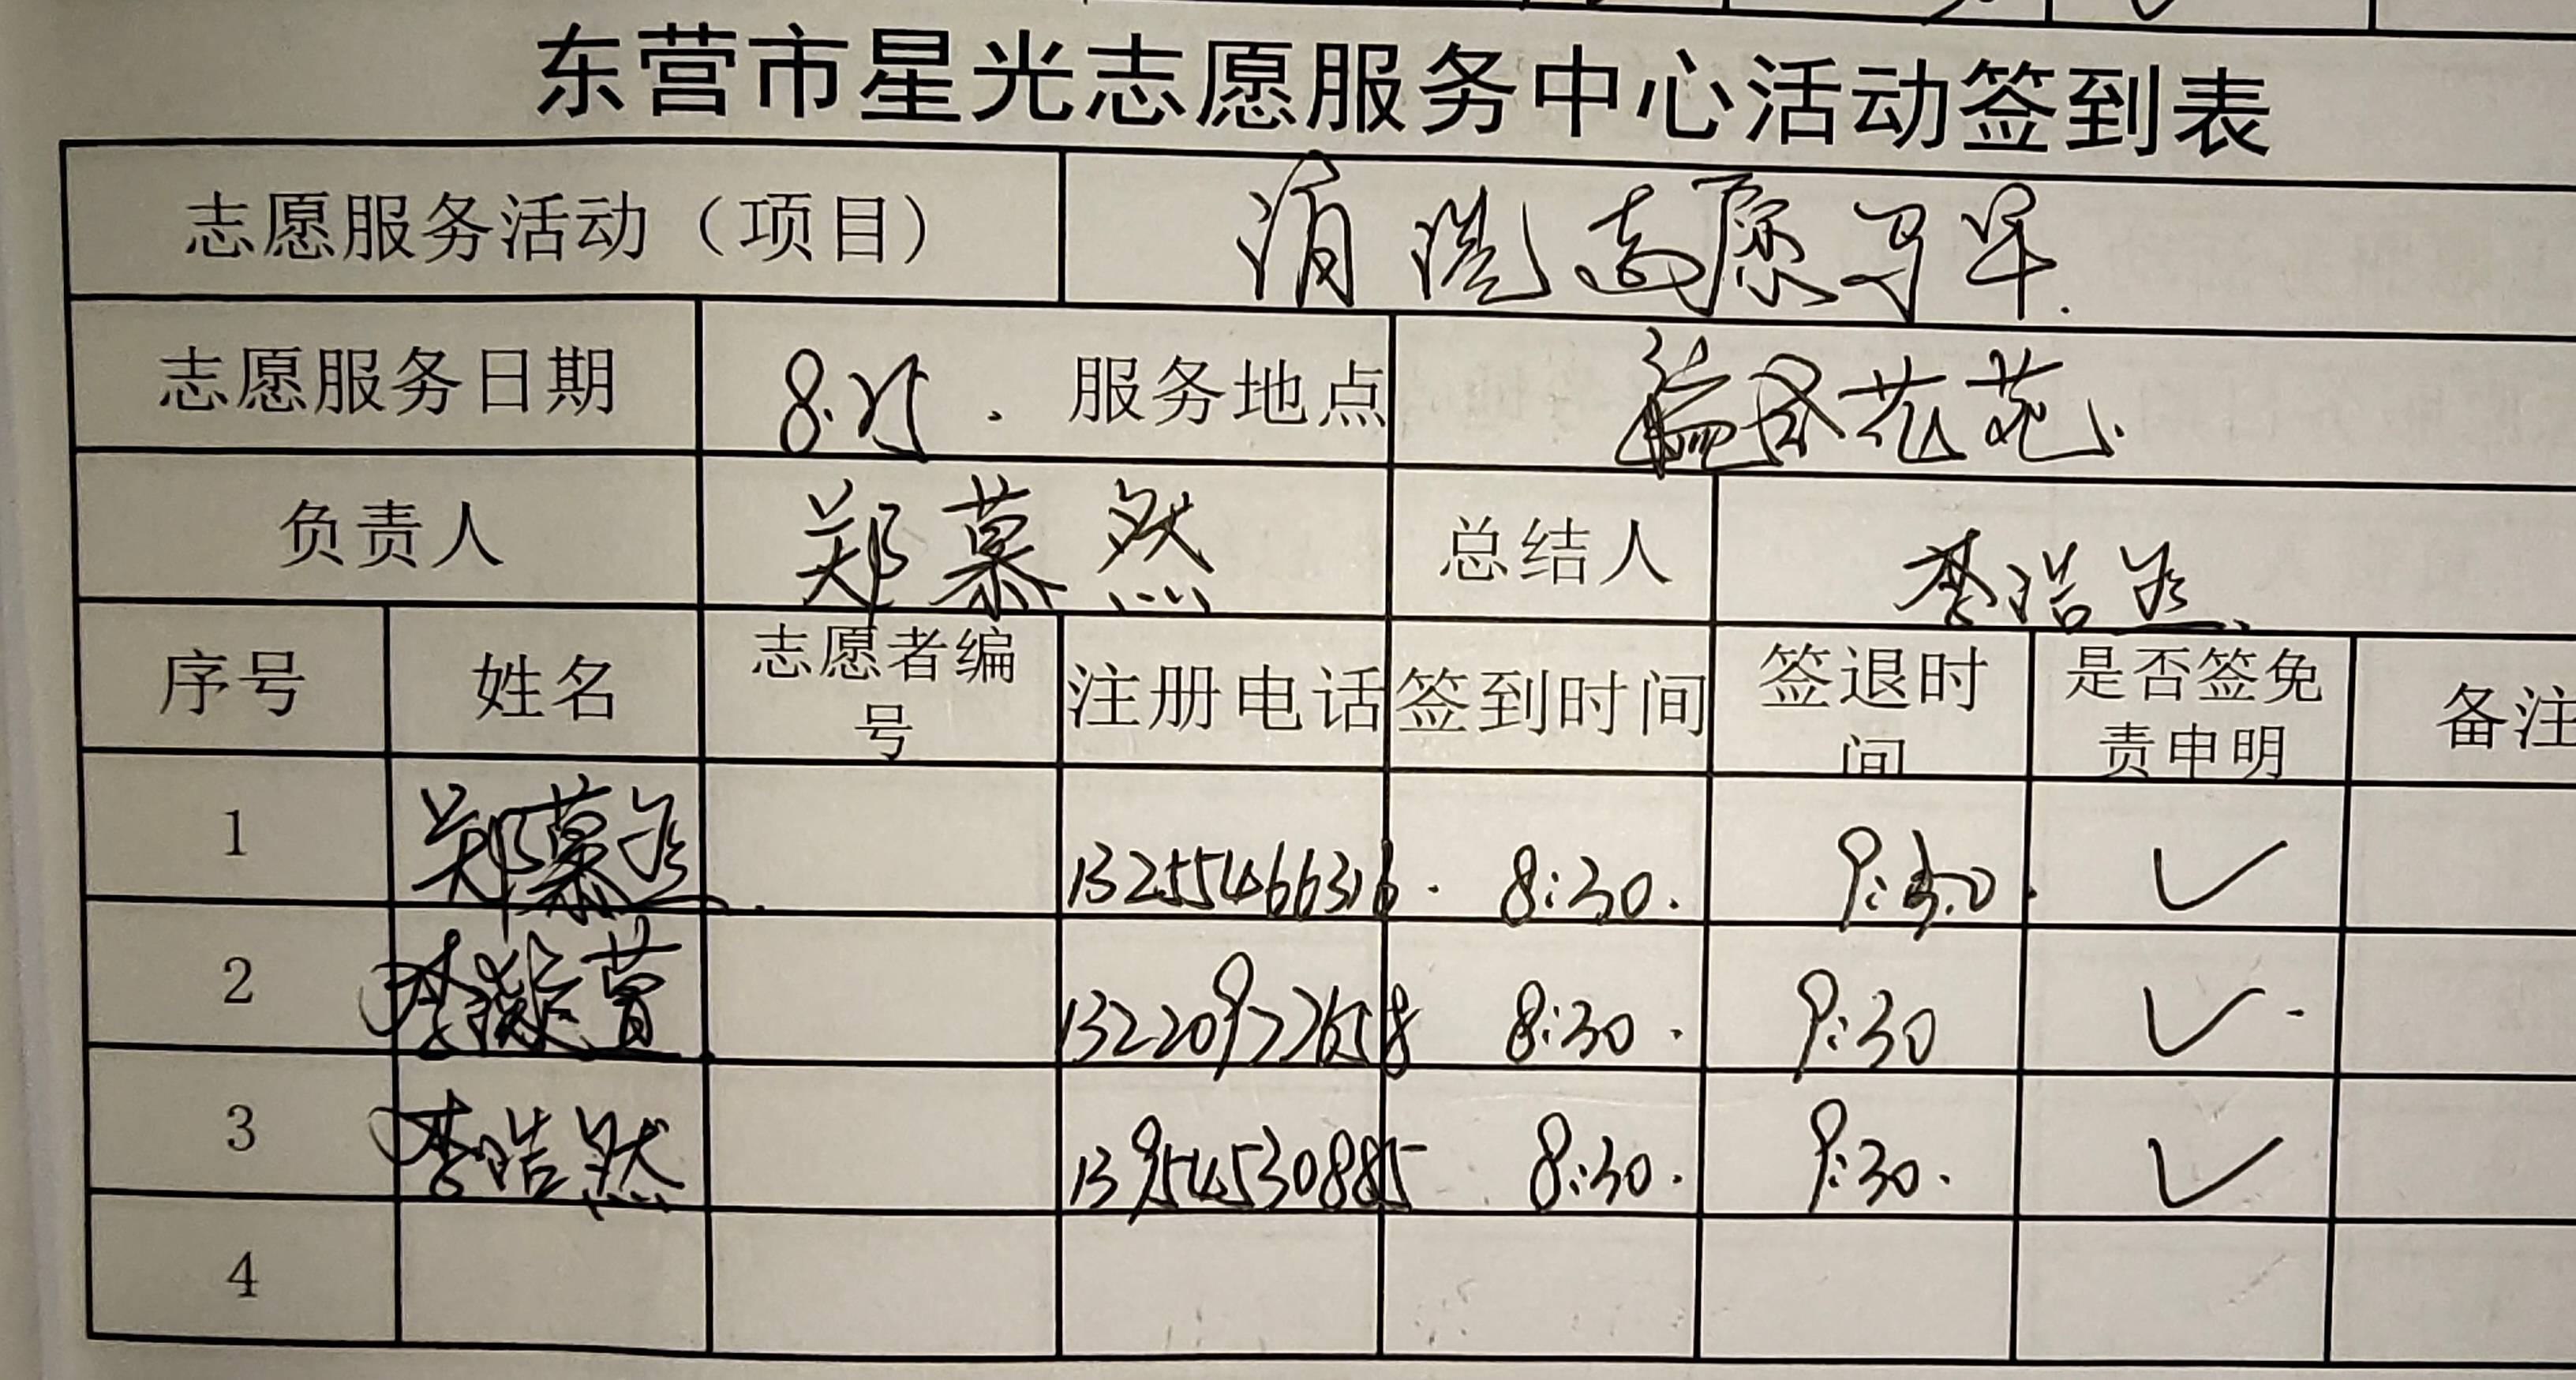 东营市星光志愿服务中心活动签到表
志愿服务活动（项目） 清洗志愿马甲.
志愿服务日期 8.25. 服务地点 花苑.
负责人 郑慕然 总结人 李浩然.
序号 姓名 志愿者编号 注册电话 签到时间 签退时间 是否签免责申明 备注
1 郑慕然. 13255466316. 8:30. 9:30. ✓
2 李凝菁 13220972658 8:30. 9:30 ✓.
3 李浩然 13954530885 8:30. 9:30. ✓
4